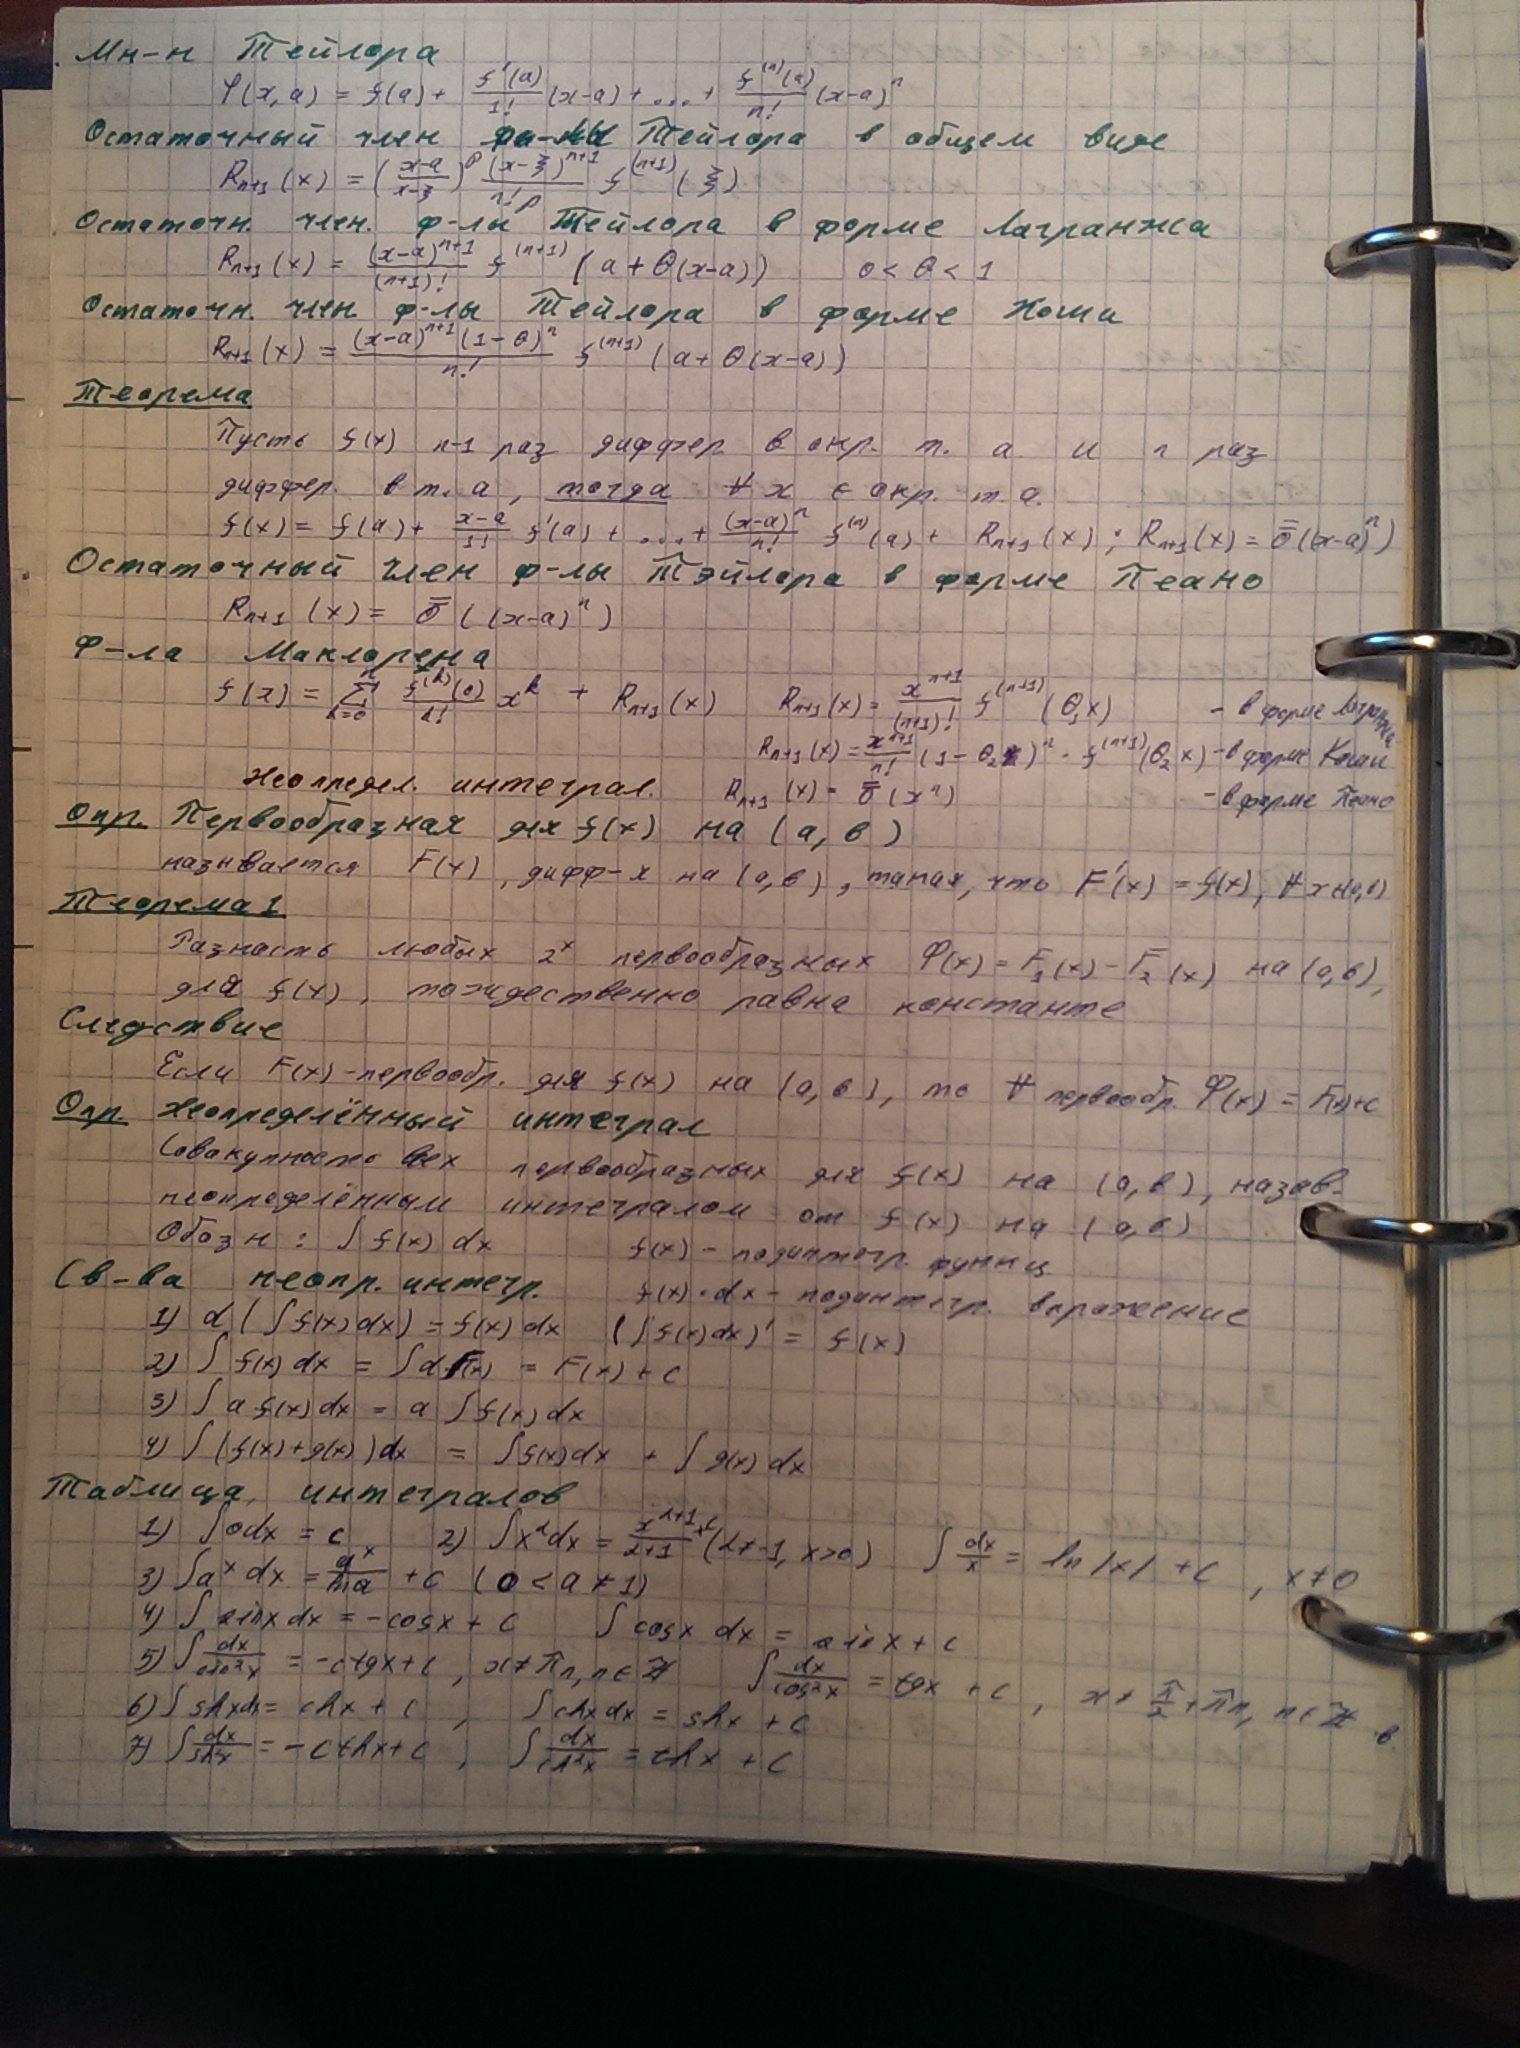 Мн-н Тейлора
φ(x,a) = f(a) + f'(a)/1! (x-a) + ... + f⁽ⁿ⁾(a)/n! (x-a)ⁿ
Остаточный член ф-лы Тейлора в общем виде
Rₙ₊₁(x) = ((x-a)/(x-ξ))ᵖ (x-ξ)ⁿ⁺¹/(n!p) f⁽ⁿ⁺¹⁾(ξ)
Остаточн. член. ф-лы Тейлора в форме Лагранжа
Rₙ₊₁(x) = (x-a)ⁿ⁺¹/(n+1)! f⁽ⁿ⁺¹⁾(a + θ(x-a)) 0 < θ < 1
Остаточн. член. ф-лы Тейлора в форме Коши
Rₙ₊₁(x) = (x-a)ⁿ⁺¹(1-θ)ⁿ/n! f⁽ⁿ⁺¹⁾(a + θ(x-a))
Теорема
Пусть f(x) n-1 раз диффер. в окр. т. a и n раз
диффер. в т. a, тогда ∀ x ∈ окр. т. a.
f(x) = f(a) + (x-a)/1! f'(a) + ... + (x-a)ⁿ/n! f⁽ⁿ⁾(a) + Rₙ₊₁(x); Rₙ₊₁(x) = ō((x-a)ⁿ)
Остаточный член ф-лы Тэйлора в форме Пеано
Rₙ₊₁(x) = ō((x-a)ⁿ)
Ф-ла Маклорена
f(x) = ∑ₖ₌₀ⁿ f⁽ᵏ⁾(0)/k! xᵏ + Rₙ₊₁(x) Rₙ₊₁(x) = xⁿ⁺¹/(n+1)! f⁽ⁿ⁺¹⁾(θ₁x) - в форме Лагранжа
Rₙ₊₁(x) = xⁿ⁺¹/n! (1-θ₂)ⁿ · f⁽ⁿ⁺¹⁾(θ₂x) - в форме Коши
Неопредел. интеграл. Rₙ₊₁(x) = ō(xⁿ) - в форме Пеано
Опр. Первообразная для f(x) на (a, b)
называется F(x), дифф-я на (a,b), такая, что F'(x) = f(x), ∀ x ∈ (a,b)
Теорема 1
Разность любых 2ˣ первообразных Φ(x) = F₁(x) - F₂(x) на (a,b),
для f(x), тождественно равна константе
Следствие
Если F(x) - первообр. для f(x) на (a,b), то ∀ первообр. Φ(x) = F(x)+c
Опр. Неопределённый интеграл
Совокупность всех первообразных для f(x) на (a,b), назыв-
неопределённым интегралом от f(x) на (a,b)
Обозн: ∫ f(x) dx f(x) - подинтегр. функц.
Св-ва неопр. интегр. f(x)·dx - подинтегр. выражение
1) d(∫ f(x) dx) = f(x) dx (∫ f(x) dx)' = f(x)
2) ∫ f(x) dx = ∫ dF(x) = F(x) + c
3) ∫ a f(x) dx = a ∫ f(x) dx
4) ∫ (f(x) + g(x)) dx = ∫ f(x) dx + ∫ g(x) dx
Таблица интегралов
1) ∫ 0dx = c 2) ∫ x^α dx = x^(α+1)/(α+1) + c (α ≠ -1, x>0) ∫ dx/x = ln|x| + c, x ≠ 0
3) ∫ aˣ dx = aˣ/ln a + c (0 < a ≠ 1)
4) ∫ sin x dx = -cos x + c ∫ cos x dx = sin x + c
5) ∫ dx/sin²x = -ctg x + c, x ≠ πn, n ∈ ℤ ∫ dx/cos²x = tg x + c, x ≠ π/2 + πn, n ∈ ℤ
6) ∫ sh x dx = ch x + c; ∫ ch x dx = sh x + c
7) ∫ dx/sh²x = -cth x + c; ∫ dx/ch²x = th x + c